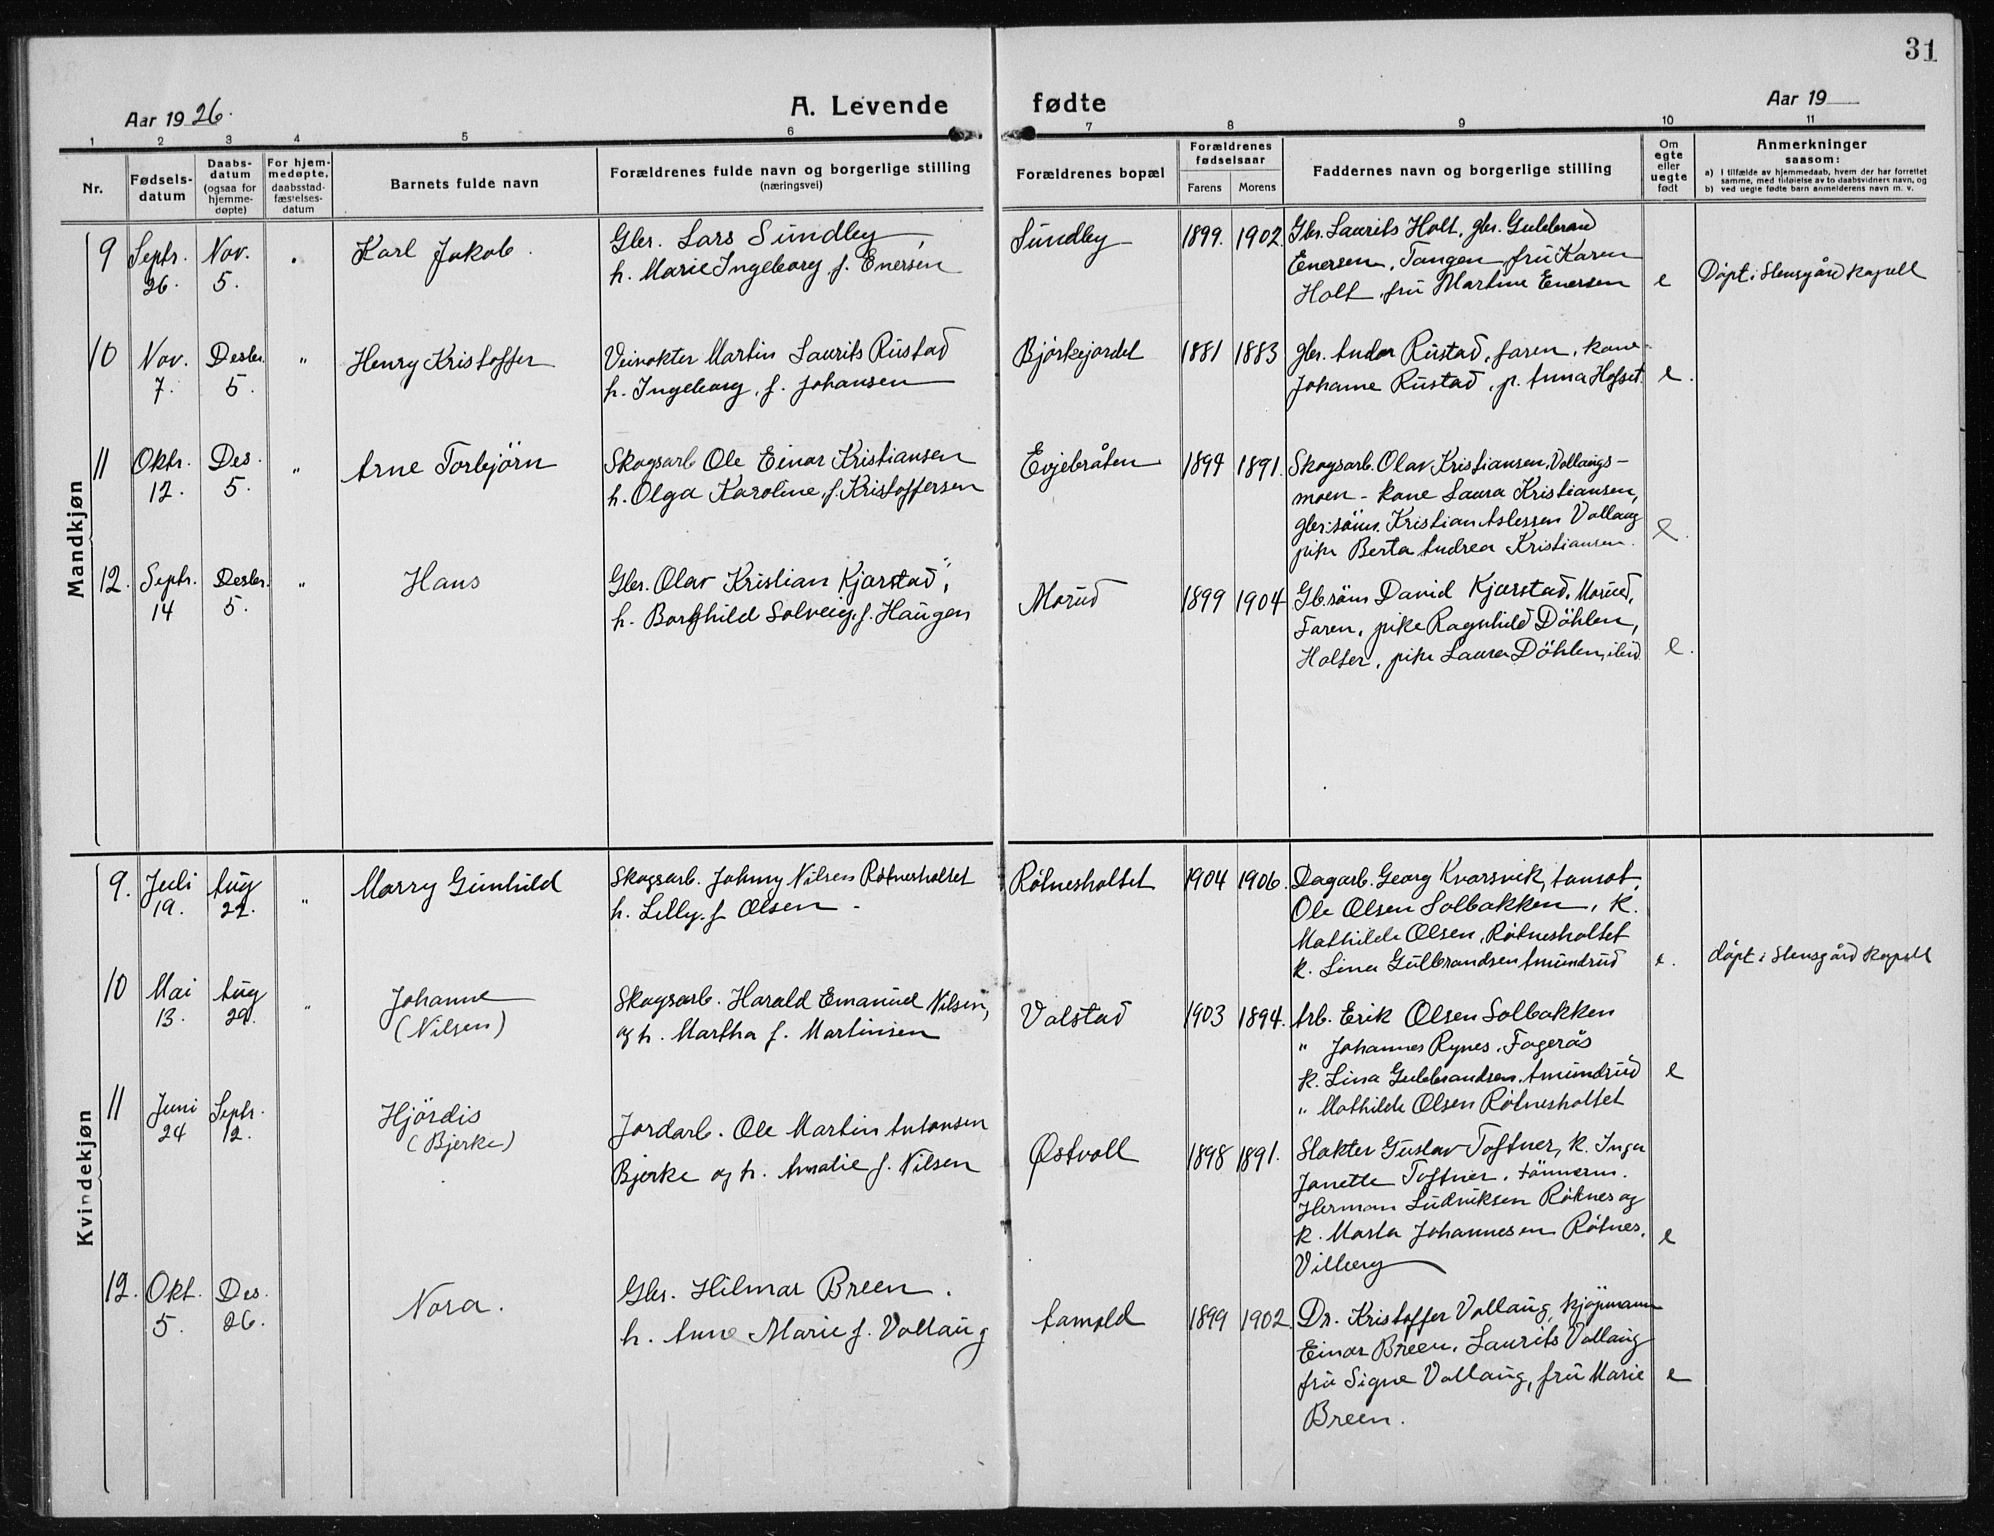 31
Aar 1926.
A. Levende fødte
Aar 19
1 2 3 4 5 6 7 8 9 10 11
Nr.
Fødsels-
datum
Daabs-
datum
(ogsaa for
hjemme-
døpte)
For hjem-
medøpte,
daabsstad-
fæstelses-
datum
Barnets fulde navn
Forældrenes fulde navn og borgerlige stilling
(næringsvei)
Forældrenes bopæl
Forældrenes
fødselsaar
Farens Morens
Faddernes navn og borgerlige stilling
Om
egte
eller
uegte
født
Anmerkninger
saasom:
a) I tilfælde av hjemmedaab, hvem der har forrettet
samme, med tilføielse av to daabsvidners navn, og
b) ved uegte fødte barn anmelderens navn m. v.
Mandkjøn
9 Septr. Nov. Karl Jakob. Gbr. Lars Sundby, Sundby 1899. 1902. Gbr. Laurits Holt, gbr. Gulbrand
26. 5. h. Marie Ingeborg f. Enersen Enersen, Tangen, fru Karen
Holt, fru Martine Enersen e Döpt i Stensgård kapell
10 Nov. Desbr. " Henry Kristoffer Veivokter Martin Laurits Rustad Bjørkejordet 1881 1883 gbr. Andor Rustad, faren, kone
7. 5. h. Ingeborg, f. Johansen Johanne Rustad, p. Anna Hofset. e.
11 Oktr. Des. " Arne Torbjörn Skogsarb. Ole Einar Kristiansen Evjebråten 1894 1891. Skogsarb. Olav Kristiansen, Vollaugs-
12. 5. h. Olga Karoline, f. Kristoffersen moen - kone Laura Kristiansen,
gbr.söns. Kristian Aslessen Vollaug
pike Berta Andrea Kristiansen. e.
12. Septr. Desbr. " Hans Gbr. Olav Kristian Kjærstad, Morud 1899 1904 Gb.söns David Kjærstad, Morud,
14 5. h. Borghild Solveig, f. Haugen Faren, pike Ragnhild Döhlen,
Holter, pike Laura Döhlen, ibid. e.
Kvindekjøn
9. Juli Aug " Marry Gunhild Skogsarb. Johnny Nilsen Røtnesholtet Røtnesholtet 1904 1906. Dagarb. Georg Kvarsvik, Aamot,
19. 22. h. Lilly. f. Olsen - Ole Olsen Solbakken, k.
Mathilde Olsen, Røtnesholtet
k. Lina Gulbrandsen Amundrud e. döpt i Stensgård kapell
10 Mai Aug " Johanne Skogsarb. Harald Emanuel Nilsen, Valstad 1903 1894. Arb. Erik Olsen Solbakken
13. 29. (Nilsen) og h. Martha f. Martinsen " Johannes Rynes, Fagerås
k. Lina Gulbrandsen, Amundrud e
" Mathilde Olsen Røtnesholtet
11 Juni Septr. Hjördis Jordarb. Ole Martin Antonsen Østvoll 1898 1891. Slakter Gustav Toftner, k. Inga
24 12. (Bjerke) Bjerke og h. Amalie f. Nilsen Janette Toftner, tömmerm.
Herman Ludviksen Røtnes og
k. Marta Johannesen Røtnes,
Vilberg e
12. Okt. Des. Nora. Gbr. Hilmar Breen. Aamold 1899 1902. Dr. Kristoffer Vollaug, kjöpmann
5. 26. h. Anne Marie f. Vollaug Einar Breen, Laurits Vollaug
fru Signe Vollaug, fru Marie e
Breen.